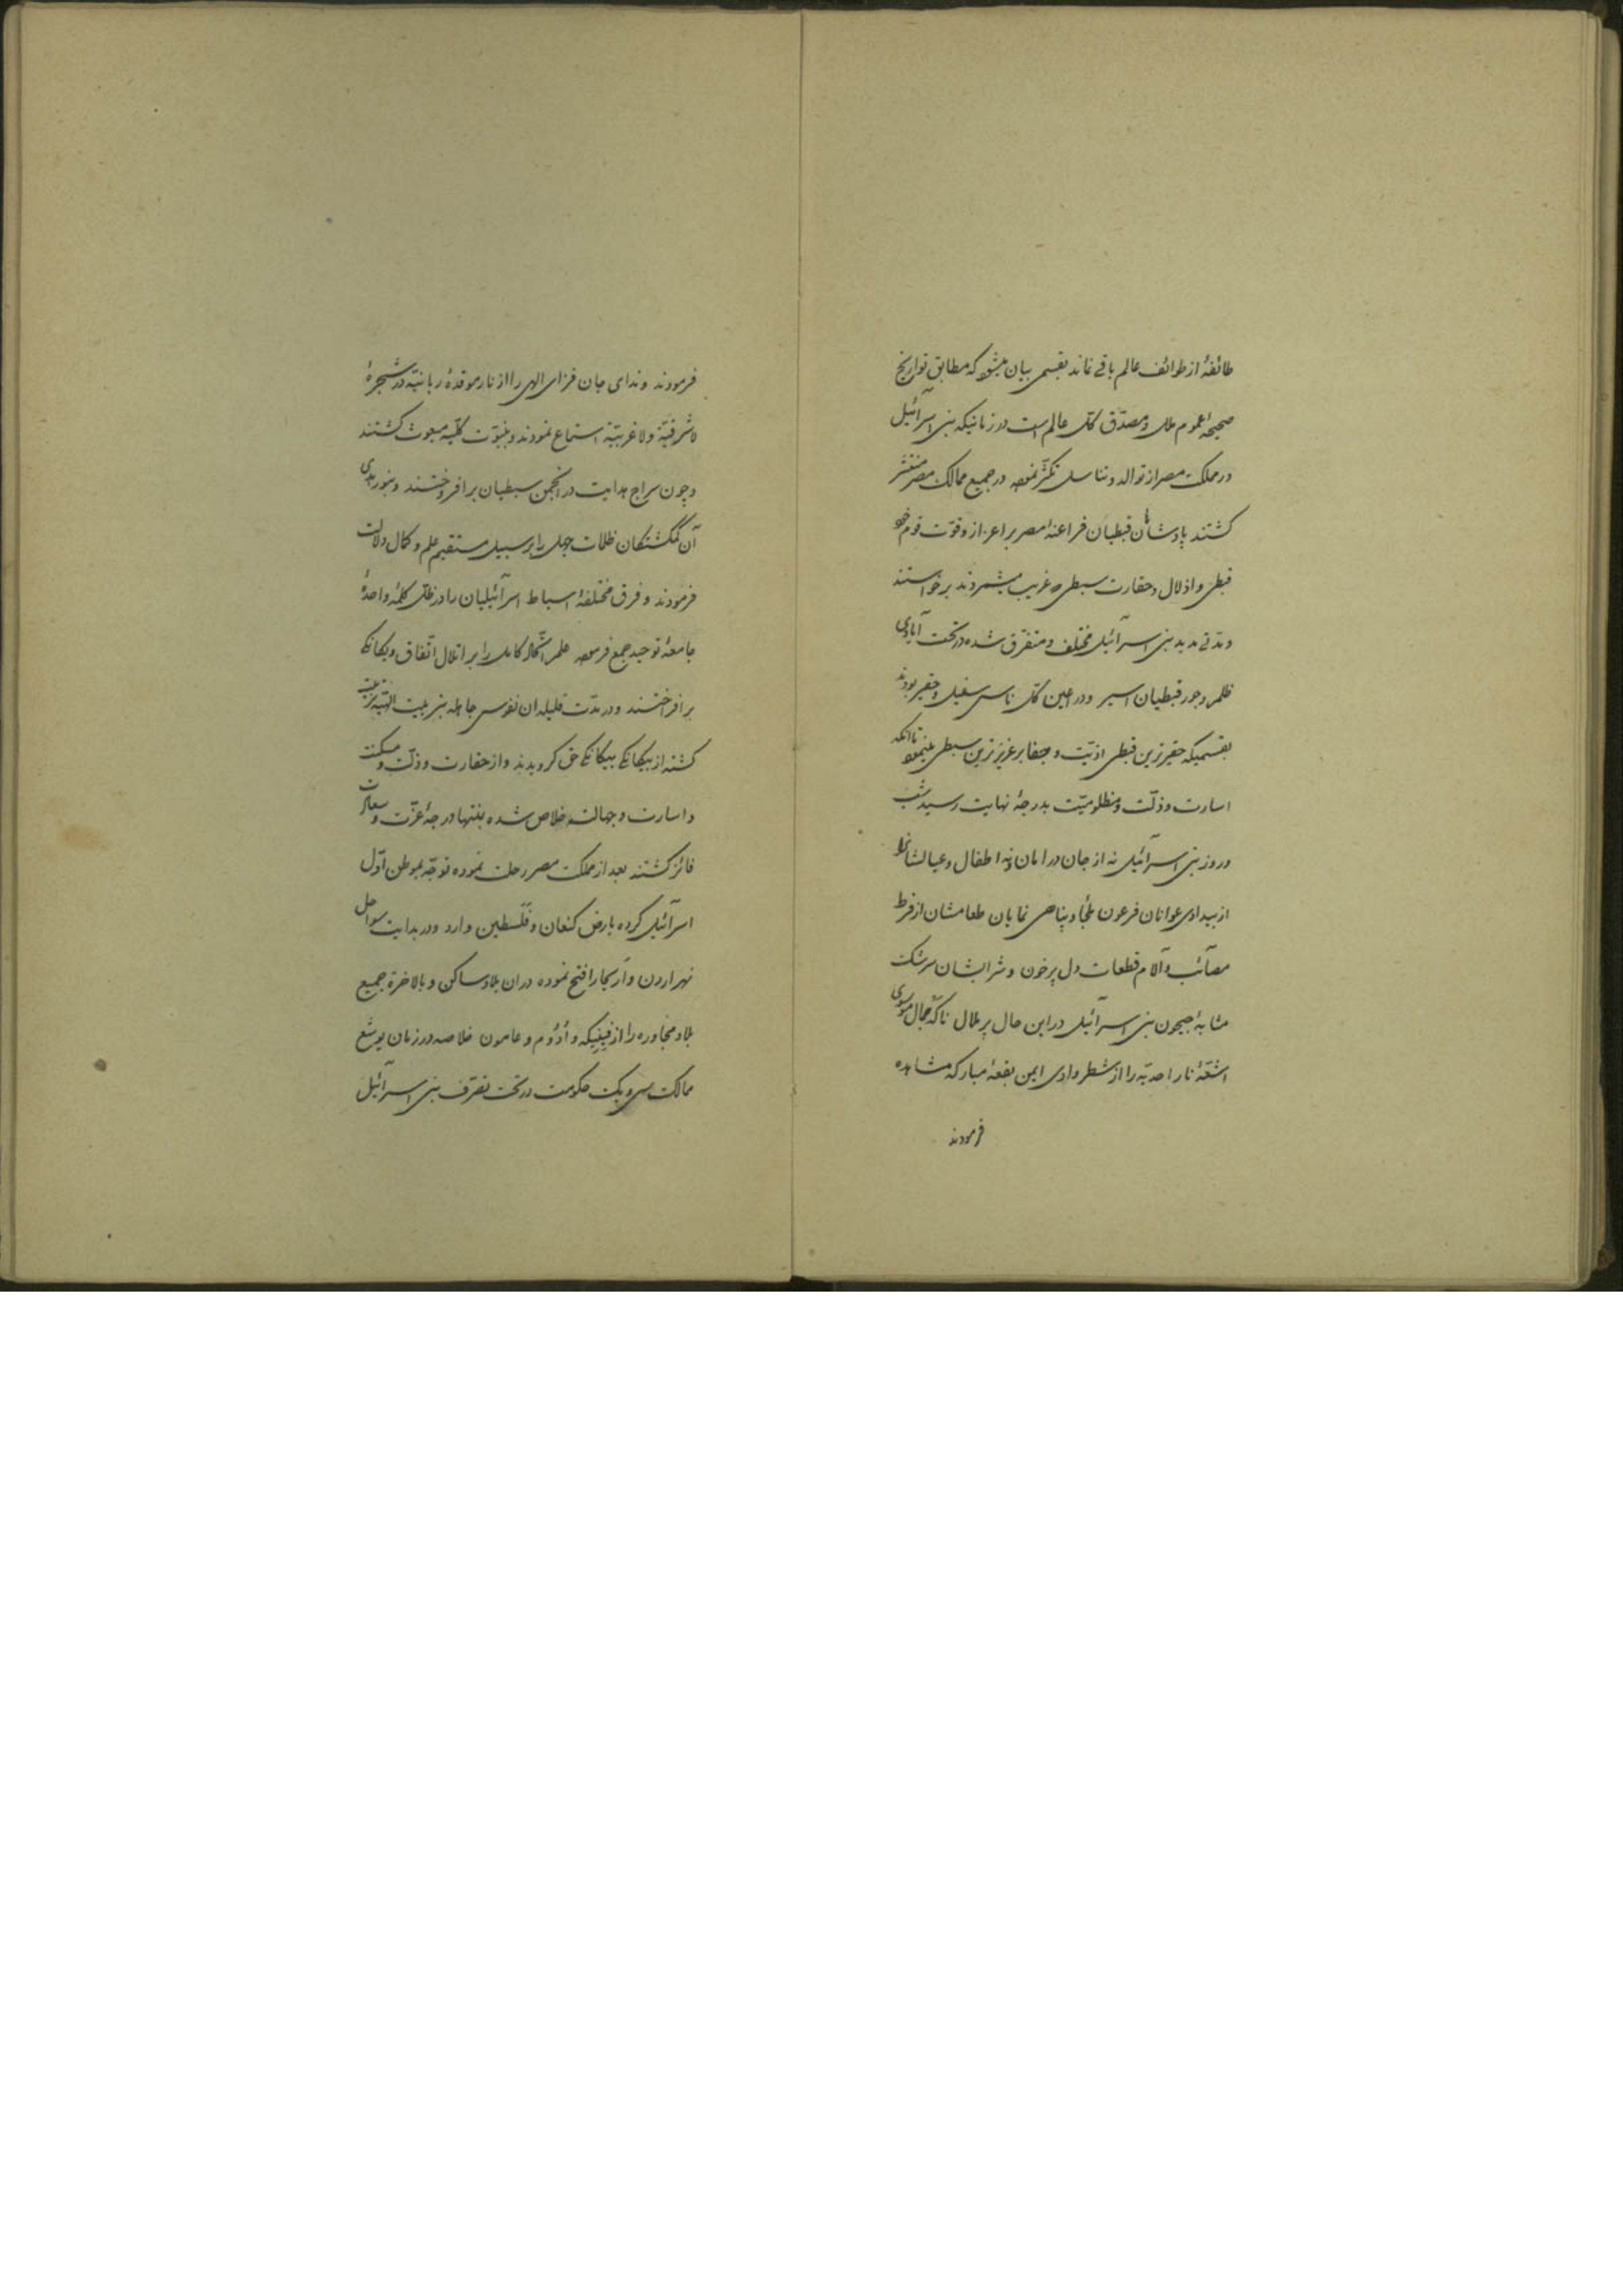 طائفهٔ از طوائف عالم باقی نماند بقسمی بیان میشود که مطابق تواریخ
صحیحهٔ عموم ملل و مصدّق کلّ عالم است در زمانیکه بنی اسرآئیل
در مملکت مصر از توالد و تناسل تکثّر نموده در جمیع ممالک مصر منتشر
کشتند پادشاهان قبطیان فراعنهٔ مصر بر اعزاز و قوّت قوم خود
قبطی و اذلال و حقارت سبطی که غریب میشمردند برخواستند
و مدّتی مدید بنی اسرآئیل مختلف و متفرّق شده در تحت آیادی
ظلم و جور قبطیان اسیر و در اعین کلّ ناس سفیل و حقیر بودند
بقسمیکه حقیرترین قبطی اذیّت و جفا بر عزیزترین سبطی مینمود تا آنکه
اسارت و ذلّت و مظلومیّت بدرجهٔ نهایت رسید شب
و روز بنی اسرآئیل نه از جان در امان و نه اطفال و عیالشانرا
از بیدادی عوانان فرعون ملجأ و پناهی نمایان طعامشان از فرط
مصآئب و آلام قطعات دل پرخون و شرابشان سرشک
مشابهٔ جیحون بنی اسرآئیل در این حال پر ملال تا آنکه جمال موسوی
اشعّهٔ نار احدیّه را از شطر وادی ایمن بقعهٔ مبارکه مشاهده
فرمودند
فرمودند و ندای جان فزای الهی را از نار موقدهٔ ربانیّه در شجرهٔ
لا شرقیّة و لا غربیّة استماع نمودند و بنبوّت کلّیّه مبعوث کشتند
و چون سراج هدایت در انجمن سبطیان برافروختند و بنور هدی
آن گمگشتکان ظلمات جهل را بر سبیل مستقیم علم و کمال دلالت
فرمودند و فرق مختلفهٔ اسباط اسرآئیلیان را در ظلّ کلمهٔ واحدهٔ
جامعهٔ توحید جمع فرموده علم اتّحاد کامل را بر اتلال اتّفاق و یکانکی
برافراختند و در مدّت قلیله ان نفوس جاهله بتربیت الهیّه تربیت
کشته از بیکانکی بیکانکی حق کرویدند و از حقارت و ذلّت و مسکنت
و اسارت و جهالت خلاص شده بمنتها درجهٔ عزّت و سعادت
فائز کشتند بعد از مملکت مصر رحلت نموده توجّه بموطن اوّل
اسرآئیل کرده بارض کنعان و فلسطین وارد و در بدایت سواحل
نهر اردن و آریحا را فتح نموده در ان بلاد ساکن و بالاخرة جمیع
بلاد مجاوره را از فینیکه و اَدُوم و عامون خلاصه در زمان یوشع
ممالک سی و یک حکومت در تحت تصرّف بنی اسرآئیل